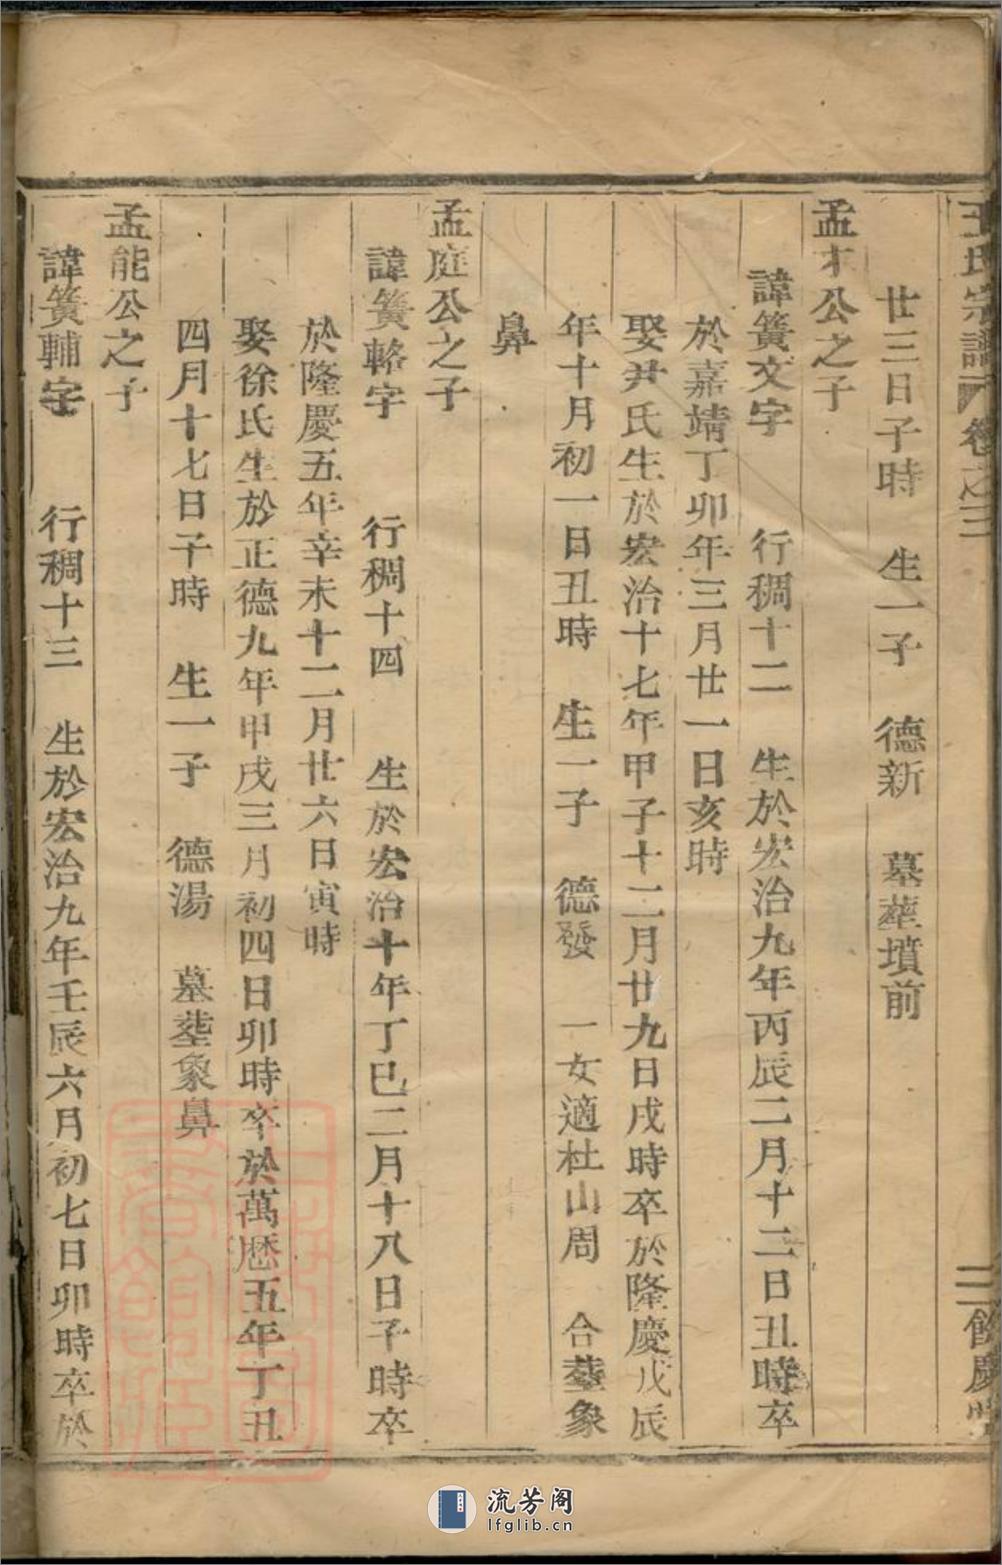 王氏宗譜 卷之三 二 餘慶堂
廿三日子時 生一子 德新 墓塟墳前
孟才公之子
諱簧文字 行稠十二 生於宏治九年丙辰二月十二日丑時卒
於嘉靖丁卯年三月廿一日亥時
娶尹氏生於宏治十七年甲子十二月廿九日戌時卒於隆慶戊辰
年十月初一日丑時 生一子 德發 一女適杜山周 合塟象
鼻
孟庭公之子
諱簧輅字 行稠十四 生於宏治十年丁巳二月十八日子時卒
於隆慶五年辛未十二月廿六日寅時
娶徐氏生於正德九年甲戌三月初四日卯時卒於萬厯五年丁丑
四月十七日子時 生一子 德湯 墓塟象鼻
孟能公之子
諱簧輔字 行稠十三 生於宏治九年壬辰六月初七日卯時卒於
流芳阁
lfglib.cn